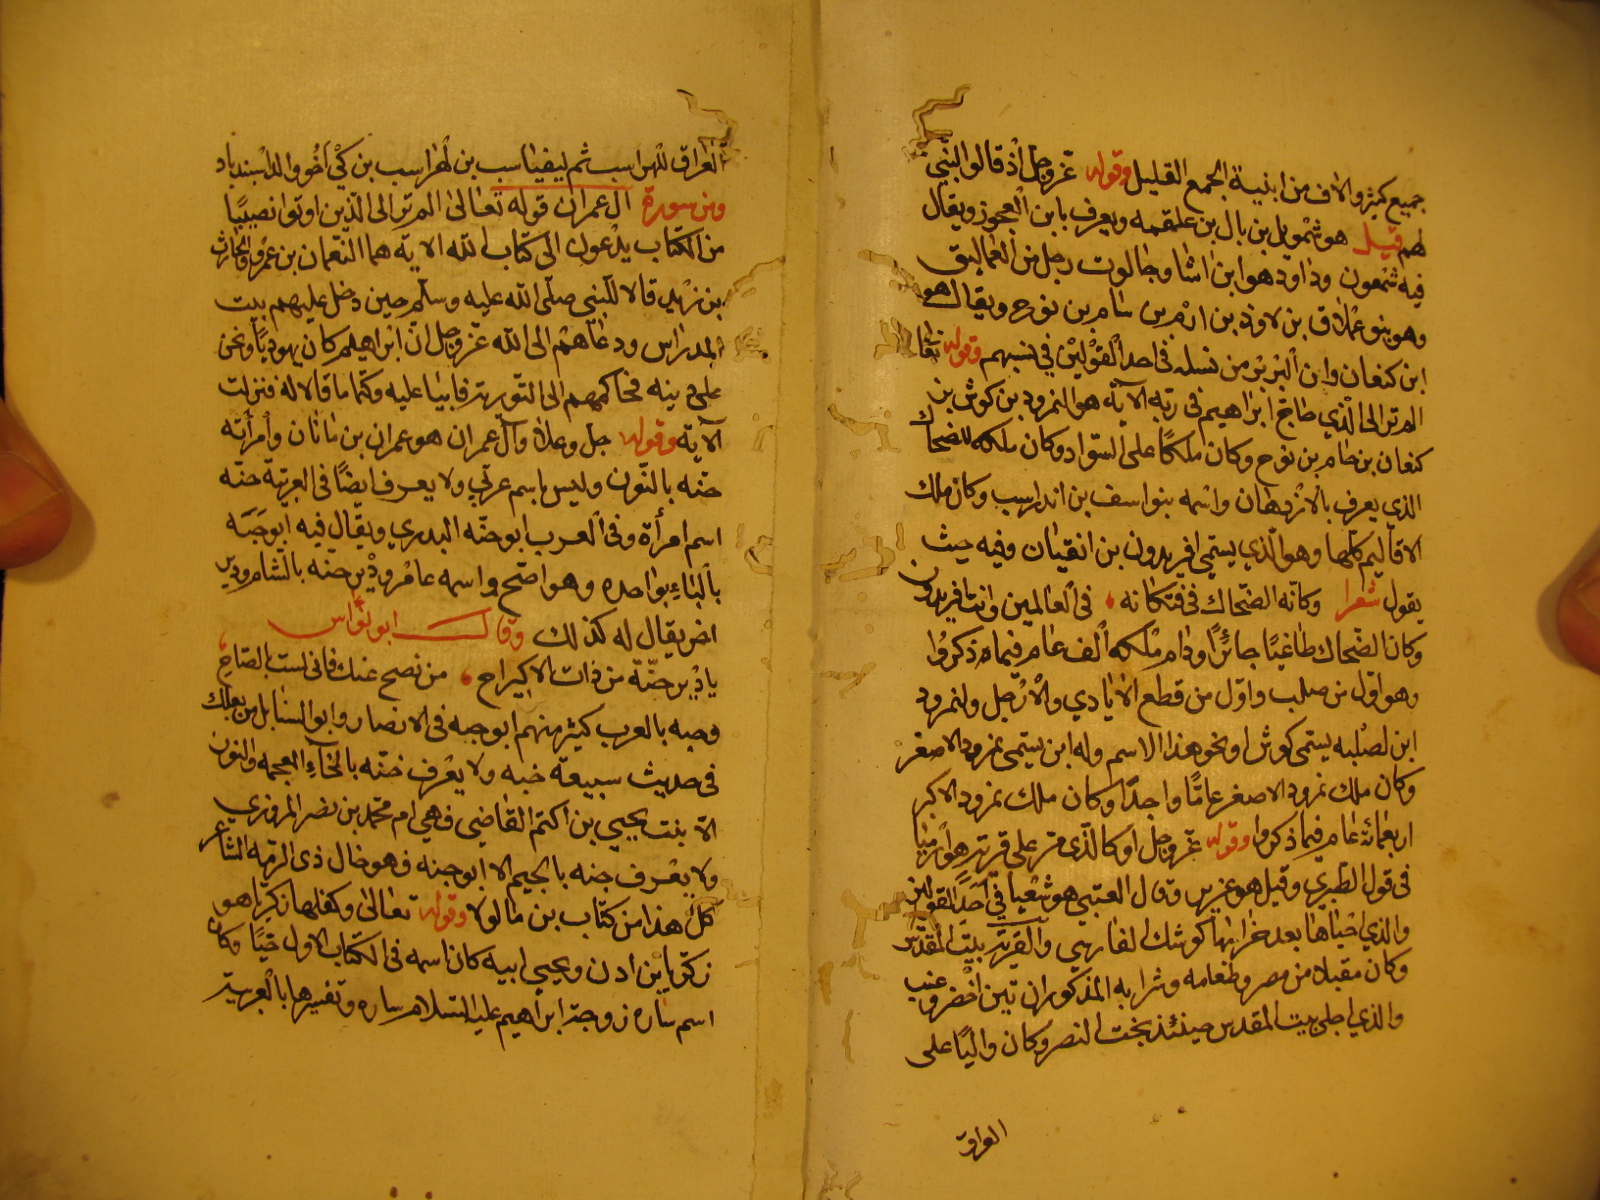 جميع كثير والاف من ابنية الجمع القليل وقوله عز وجل اذ قالوا لنبي
لهم قيل هو شمويل بن بال بن علقمه ويعرف بابن العجوز ويقال
فيه شمعون وداود هو ابن اشا وجالوت رجل من العماليق
وهو بنو عملاق بن لاوذ بن ارم بن سام بن نوح ويقال هو
ابن كنعان وابن البربر من نسله في احد القولين في نسبهم وقوله تعا
الم تر الى الذي حاج ابراهيم في ربه الاية هو النمرود بن كوش بن
كنعان بن حام بن نوح وكان ملكا على السواد وكان ملكه للضحاك
الذي يعرف بالازدهان واسمه بنواسف بن اندراسب وكان ملك
الاقاليم كلها وهو الذي يسمى افريدون بن اثقيان وفيه حيث
يقول شعرا وكانه الضحاك في فتكاته في العالمين وانت افريدون
وكان الضحاك طاغيا جائرا ودام ملكه الف عام فيما ذكروا
وهو اول من صلب واول من قطع الايادي والارجل ولنمرود
ابن لصلبه يسمى كوش او نحو هذا الاسم وله ابن يسمى نمرود الاصغر
وكان ملك نمرود الاصغر عاما واحدا وكان ملك نمرود الاكبر
اربعمائة عام فيما ذكروا وقوله عز وجل او كالذي مر على قرية هو ارميا
في قول الطبري وقيل هو عزير وقال العتبي هو شعيا في احد القولين
والذي احياها بعد خرابها كوشك الفارسي والقرية بيت المقدس
وكان مقبلا من مصر وطعامه وشرابه المذكوران تين اخضر وعنب
والذي اجلى بيت المقدس حينئذ بخت النصر وكان واليا على
العراق
العراق للهراسب ثم ليفياسب بن لهراسب بن كي اخو والد اسبندياد
ومن سورة ال عمران قوله تعالى الم تر الى الذين اوتوا نصيبا
من الكتاب يدعون الى كتاب الله الاية هما النعمان بن عمرو والحارث
بن زيد قالا للنبي صلى الله عليه وسلم حين دخل عليهم بيت
المدراس ودعاهم الى الله عز وجل ان ابراهيم كان يهوديا ونحن
على دينه فحاكمهم الى التورية فابيا عليه وكتما ما قالا له فنزلت
الاية وقوله جل وعلا وآل عمران هو عمران بن ماتان وامرأته
حنه بالنون وليس باسم عربي ولا يعرف ايضا في العربية حنه
اسم امرأة وفي العرب ابو حنه البدري ويقال فيه ابو حبه
بالباء بواحده وهو اصح واسمه عامر ودير حنه بالشام ودير
اخر يقال له كذلك وقال ابو نواس
يا دير حنة من ذات الاكيراح من نصح عنك فاني لست بالصاح
وحبه بالعرب كثير منهم ابو حبه في الانصار وابو السنابل بن بعكك
في حديث سبيعة حبه ولا يعرف خنه بالخاء المعجمه والنون
الا بنت يحيى بن اكتم القاضي فهي ام محمد بن نصر المروزي
ولا يعرف جنه بالجيم الا ابو جنه فهو خال ذي الرمه الشاعر
كل هذا من كتاب بن ماكولا وقوله تعالى وكفلها زكريا هو
زكريا بن ادن ويحيى ابيه كان اسمه في الكتاب الاول حيا وكان
اسم ساره زوجة ابراهيم عليه السلام ساره وتفسيرها بالعربية